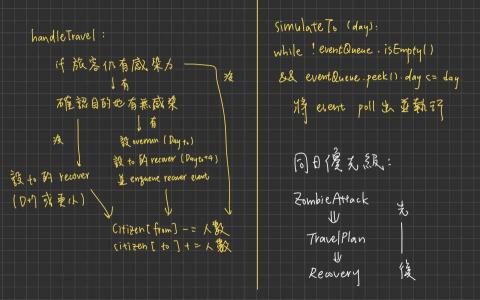 handleTravel:
if 旅客仍有感染力
有
沒
確認目的地有無感染
沒
有
設 overrun (Day+0)
設 to 的 recover
設 to 的 recover
並 enqueue recover event
Citizen[from] -= 人數
citizen[to] += 人數
simulateTo (day):
while !eventQueue.isEmpty()
&& eventQueue.peek().day <= day
將 event poll 出並執行
同日優先級:
ZombieAttack
先
TravelPlan
Recovery
後